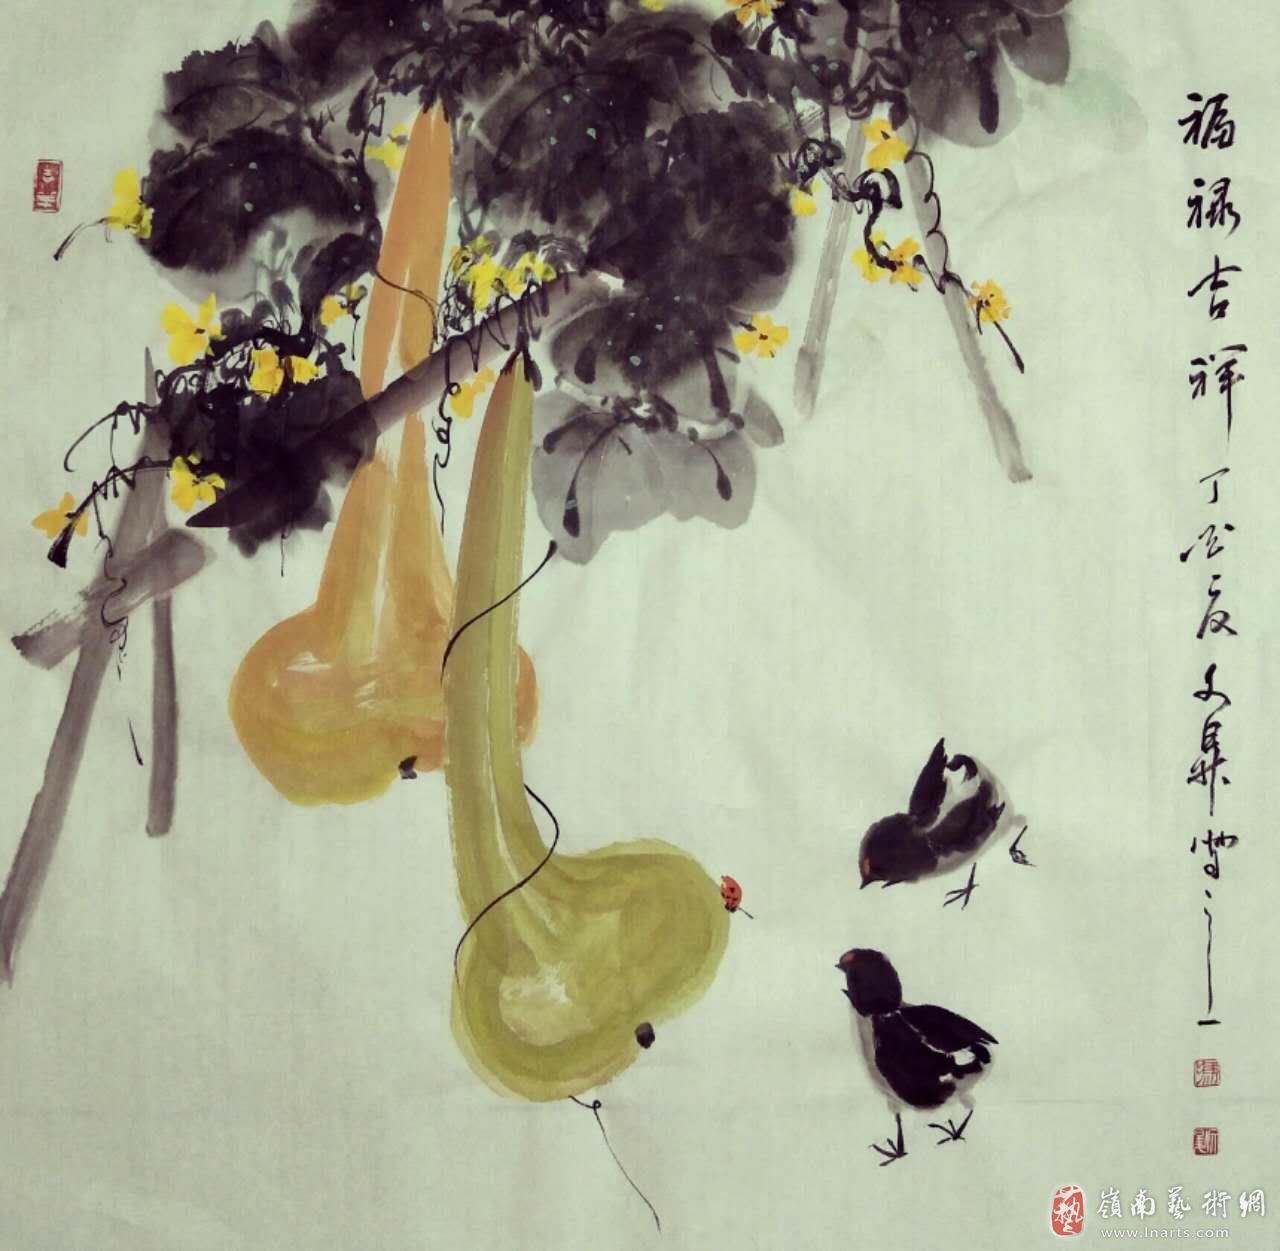 福禄吉祥丁酉夏文昇写之
嶺南藝術網
www.lnarts.com